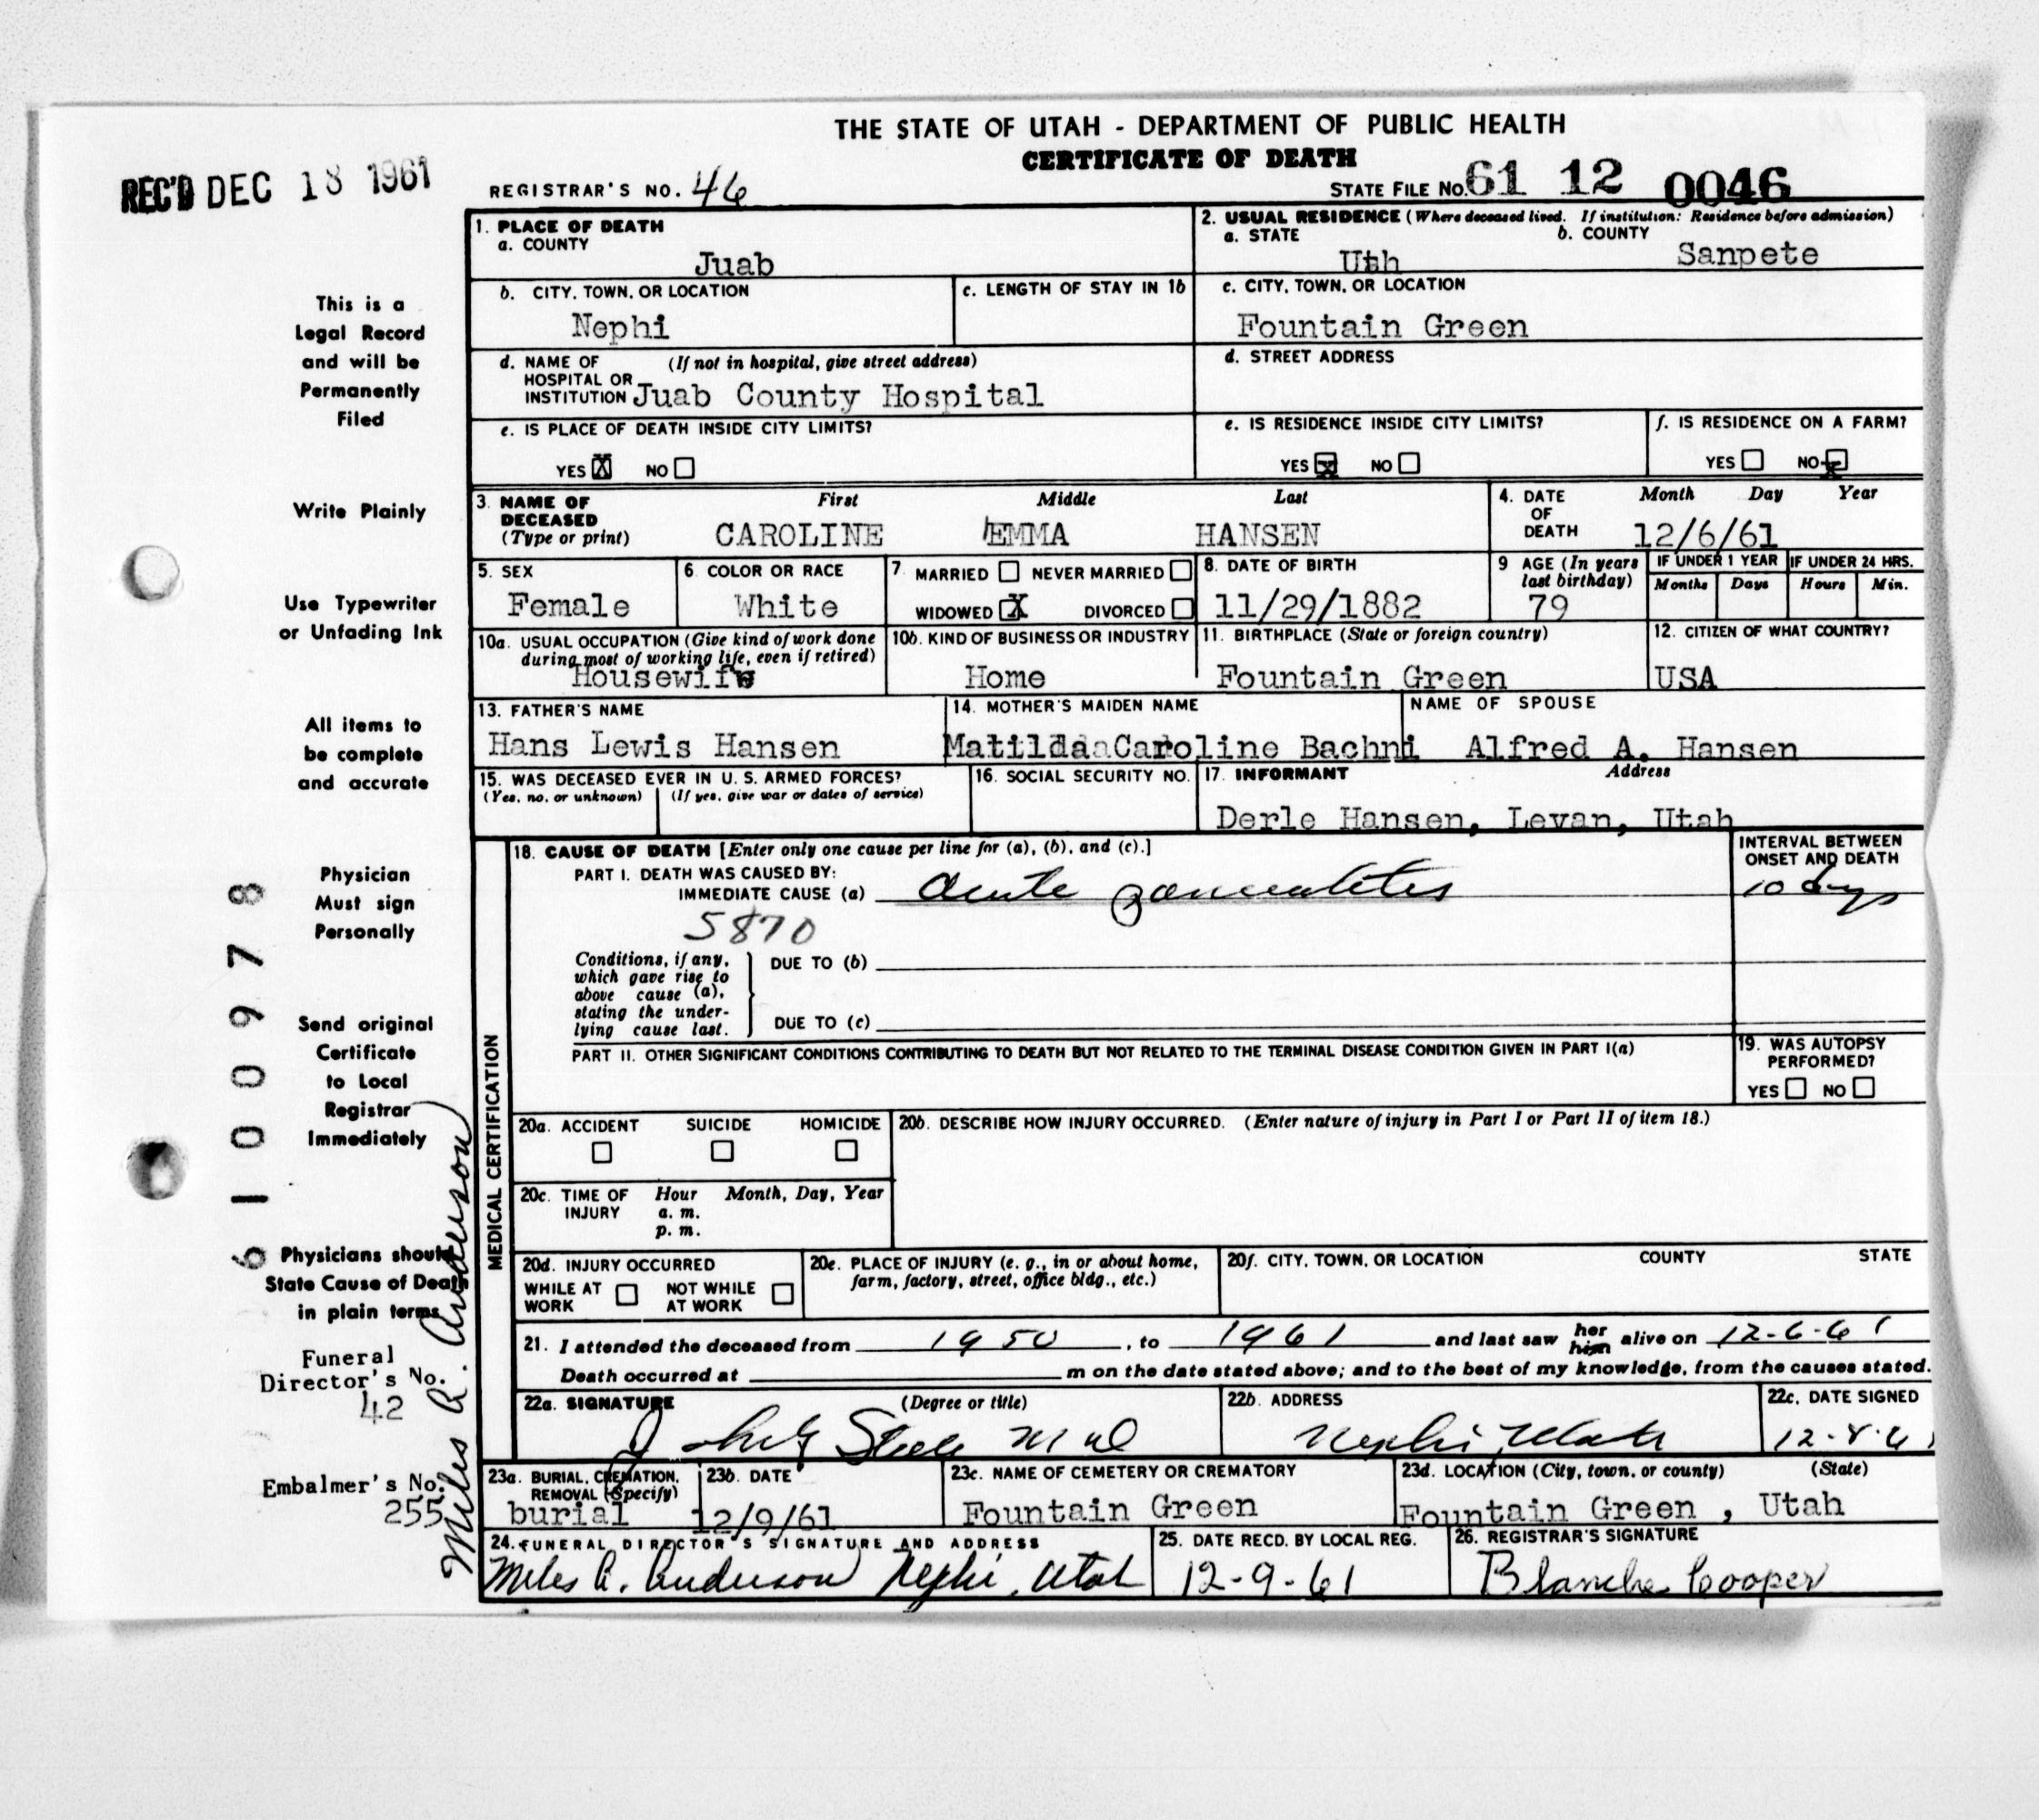 THE STATE OF UTAH - DEPARTMENT OF PUBLIC HEALTH
CERTIFICATE OF DEATH
REC'D DEC 18 1961
REGISTRAR'S NO. 46
STATE FILE NO. 61 12 0046
1. PLACE OF DEATH
a. COUNTY
Juab
2. USUAL RESIDENCE (Where deceased lived. If institution: Residence before admission)
a. STATE b. COUNTY
Uth Sanpete
b. CITY, TOWN, OR LOCATION
Nephi
c. LENGTH OF STAY IN 1b
c. CITY, TOWN, OR LOCATION
Fountain Green
d. NAME OF (If not in hospital, give street address)
HOSPITAL OR
INSTITUTION Juab County Hospital
d. STREET ADDRESS
e. IS PLACE OF DEATH INSIDE CITY LIMITS?
YES X NO
e. IS RESIDENCE INSIDE CITY LIMITS?
YES X NO
f. IS RESIDENCE ON A FARM?
YES NO X
3. NAME OF DECEASED (Type or print)
First Middle Last
CAROLINE EMMA HANSEN
4. DATE OF DEATH
Month Day Year
12/6/61
5. SEX
Female
6. COLOR OR RACE
White
7. MARRIED NEVER MARRIED
WIDOWED X DIVORCED
8. DATE OF BIRTH
11/29/1882
9 AGE (In years last birthday)
79
IF UNDER 1 YEAR
Months Days
IF UNDER 24 HRS.
Hours Min.
10a. USUAL OCCUPATION (Give kind of work done
during most of working life, even if retired)
Housewife
10b. KIND OF BUSINESS OR INDUSTRY
Home
11. BIRTHPLACE (State or foreign country)
Fountain Green
12. CITIZEN OF WHAT COUNTRY?
USA
13. FATHER'S NAME
Hans Lewis Hansen
14. MOTHER'S MAIDEN NAME
MatildaaCaroline Bachni
NAME OF SPOUSE
Alfred A. Hansen
15. WAS DECEASED EVER IN U. S. ARMED FORCES?
(Yes, no, or unknown) (If yes, give war or dates of service)
16. SOCIAL SECURITY NO.
17. INFORMANT Address
Derle Hansen, Levan, Utah
MEDICAL CERTIFICATION
18. CAUSE OF DEATH [Enter only one cause per line for (a), (b), and (c).]
PART I. DEATH WAS CAUSED BY:
IMMEDIATE CAUSE (a) acute pancreatitis
5870
INTERVAL BETWEEN
ONSET AND DEATH
10 days
Conditions, if any,
which gave rise to
above cause (a),
stating the under-
lying cause last.
DUE TO (b)
DUE TO (c)
PART II. OTHER SIGNIFICANT CONDITIONS CONTRIBUTING TO DEATH BUT NOT RELATED TO THE TERMINAL DISEASE CONDITION GIVEN IN PART I(a)
19. WAS AUTOPSY
PERFORMED?
YES NO
20a. ACCIDENT SUICIDE HOMICIDE
20b. DESCRIBE HOW INJURY OCCURRED. (Enter nature of injury in Part I or Part II of item 18.)
20c. TIME OF INJURY
Hour Month, Day, Year
a. m.
p. m.
20d. INJURY OCCURRED
WHILE AT WORK NOT WHILE AT WORK
20e. PLACE OF INJURY (e. g., in or about home,
farm, factory, street, office bldg., etc.)
20f. CITY, TOWN, OR LOCATION COUNTY STATE
21. I attended the deceased from 1950, to 1961 and last saw her him alive on 12-6-61
Death occurred at m on the date stated above; and to the best of my knowledge, from the causes stated.
22a. SIGNATURE (Degree or title)
Steele M D
22b. ADDRESS
Nephi, Utah
22c. DATE SIGNED
12-8-61
23a. BURIAL, CREMATION,
REMOVAL (Specify)
burial
23b. DATE
12/9/61
23c. NAME OF CEMETERY OR CREMATORY
Fountain Green
23d. LOCATION (City, town, or county) (State)
Fountain Green , Utah
24. FUNERAL DIRECTOR'S SIGNATURE AND ADDRESS
Miles A. Anderson Nephi, Utah
25. DATE RECD. BY LOCAL REG.
12-9-61
26. REGISTRAR'S SIGNATURE
Blanche Cooper
This is a
Legal Record
and will be
Permanently
Filed
Write Plainly
Use Typewriter
or Unfading Ink
All items to
be complete
and accurate
Physician
Must sign
Personally
Send original
Certificate
to Local
Registrar
Immediately
Physicians should
State Cause of Death
in plain terms
Funeral
Director's No.
42
Embalmer's No.
255
Miles A. Anderson
6100978